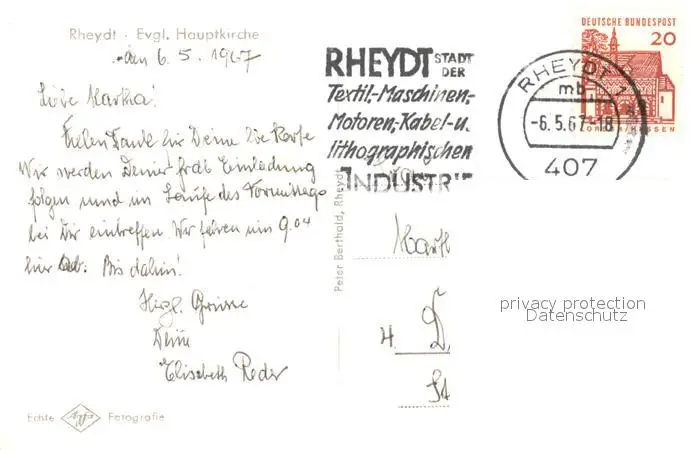 Rheydt · Evgl. Hauptkirche
den 6. 5. 1967
Liebe Martha!
Vielen Dank für Deine liebe Karte
Wir werden Deiner Einladung
folgen und im Laufe des Vormittags
bei Dir eintreffen. Wir fahren um 9.04
hier ab. Bis dahin!
Herzl. Grüsse
Deine
Elisabeth Reder
Echte Agfa Fotografie
Peter Berthold, Rheydt
RHEYDT STADT
DER
Textil-, Maschinen-,
Motoren-, Kabel- u.
lithographischen
INDUSTRIE
RHEYDT 1
mb
-6.5.67-18
407
DEUTSCHE BUNDESPOST
20
LORSCH/HESSEN
4. D
St
privacy protection
Datenschutz